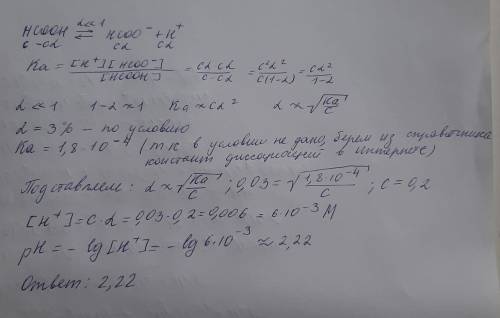 α≪1
HCOOH ⇄ HCOO⁻ + H⁺
c-cα cα cα
Ka = [H⁺][HCOO⁻]/[HCOOH] = cα·cα/(c-cα) = c²α²/c(1-α) = cα²/(1-α)
α≪1 1-α≈1 Ka≈cα² α≈√(Ka/c)
α = 3% – по условию
Ka = 1,8·10⁻⁴ (т к в условии не дано, берем из справочника
констант диссоциаций в интернете)
Подставляем: α≈√(Ka/c); 0,03=√(1,8·10⁻⁴/c); c=0,2
[H⁺]=c·α=0,03·0,2=0,006=6·10⁻³ М
pH=-lg[H⁺]=-lg 6·10⁻³≈2,22
Ответ: 2,22